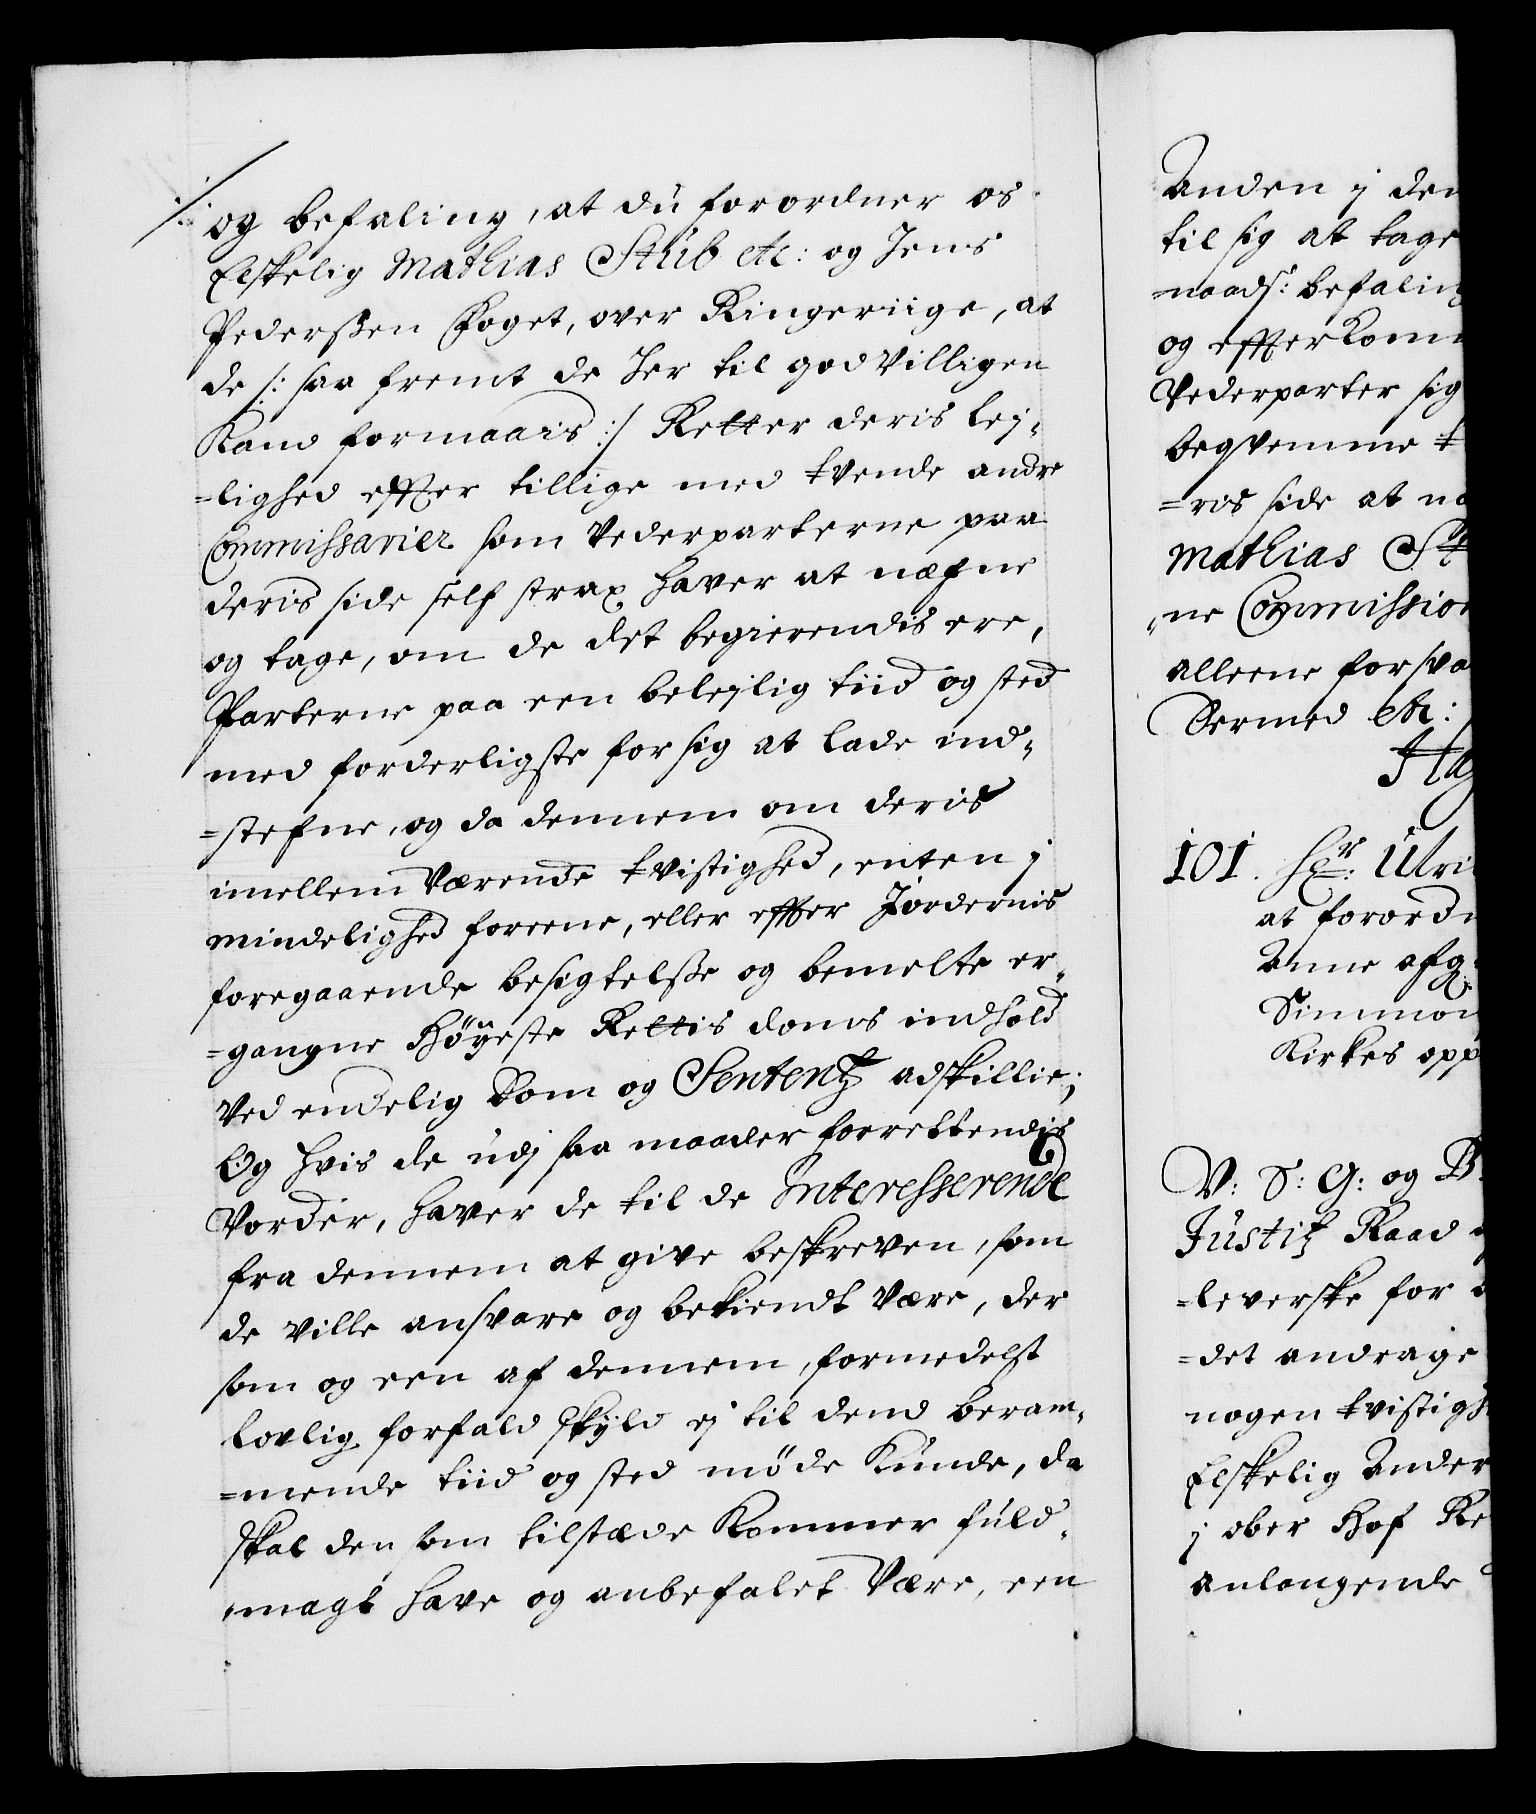 og befaling, at du forordner os
Elskelig Mathias Stub etc: og Jens
Pederßen Foget, over Ringeriige, at
de /: saa fremt de her til godvilligen
Kand formaais :/ Retter deris lej-
=lighed effter tillige med tvende andre
Commissarier som Vederparterne paa
deris side self strax haver at næfne
og tage, om de det begierendis ere,
Parterne paa een belejlig tiid og sted
med forderligste for sig at lade ind-
=stefne, og da dennem om deris
imellem Værende tvistighed, enten j
mindelighed foreene, eller effter Jordernis
foregaaende besigtelße og bemelte er-
=gangne Høyeste Rettis doms indhold
Ved endelig Dom og Sententz adskillie;
Og hvis de udj saa maader forrettendis
Vorder, haver de til de Interesserende
fra dennem at give beskreven, som
de ville ansvare og bekiendt Være, der
som og een af dennem, formedelst
lovlig forfald skyld ej til dend beram-
=mende tiid og sted møde Kunde, da
skal den som tilstæde Kommer fuld-
magt have og anbefalet Være, een
Anden j den
til sig at tage
naads: befaling
og effterkom
Vederparter sig
beqvemme t
=ris side at n
Mathias St
ne Commission
alleene forsva
Dermed etc:
Haf
101. Hr: Ulri
at forord
Anne afg
Simmon
Kirkes opp
V: S: G: og B:
Justitz Raad
=leverske for
=det andrage
nogen tvistigh
Elskelig Ander
j ober Hof Re
anlangende